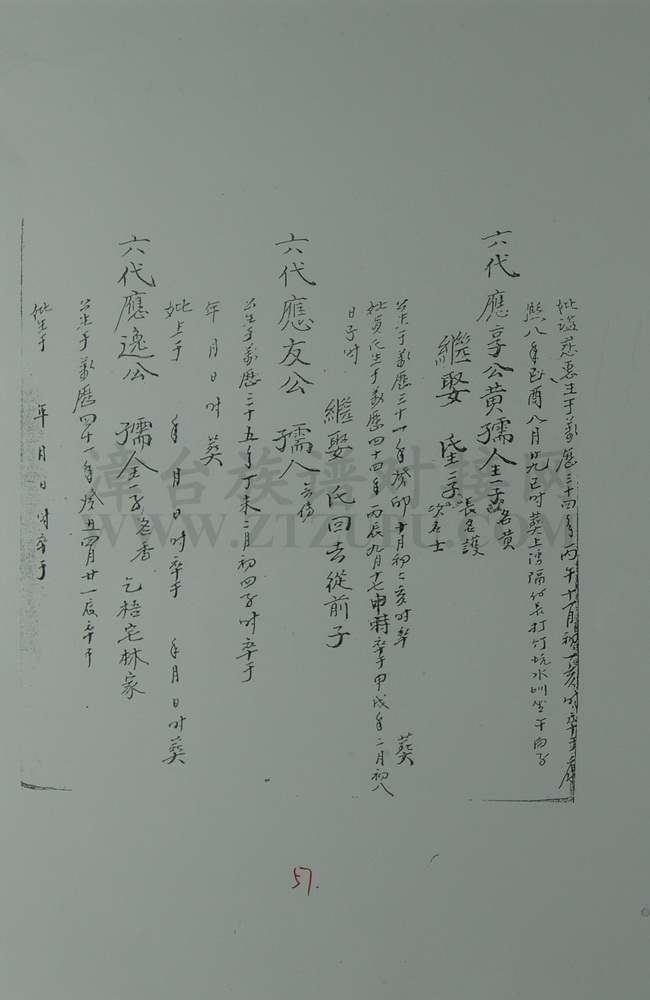 妣謚慈惠生于萬歷三十四年丙午十一月初一亥时卒于康
熙八年己酉八月廿九巳时葬上湾隔竹坑水圳坐午向子
六代應享公黄孺人生一子名黄
繼娶 氏生二子長名護
次名士
公生于萬歷三十一年癸卯十月初二亥时卒 葬
妣貞氏生于萬歷四十四年丙辰九月十七申時卒于甲戌年二月初八
日子时
繼娶 氏回去從前子
六代應友公 孺人 无傳
公生于萬歷三十五年丁未二月初四子时卒于
年月日时葬
妣上于 年月日时卒于 年月日时葬
六代應逸公 孺人生一子名香 乞梧宅林家
公生于萬歷四十一年癸丑四月廿一辰卒于
妣生于 年月日时卒于
57.
漳台族谱对接网
WWW.ZTZUPU.COM